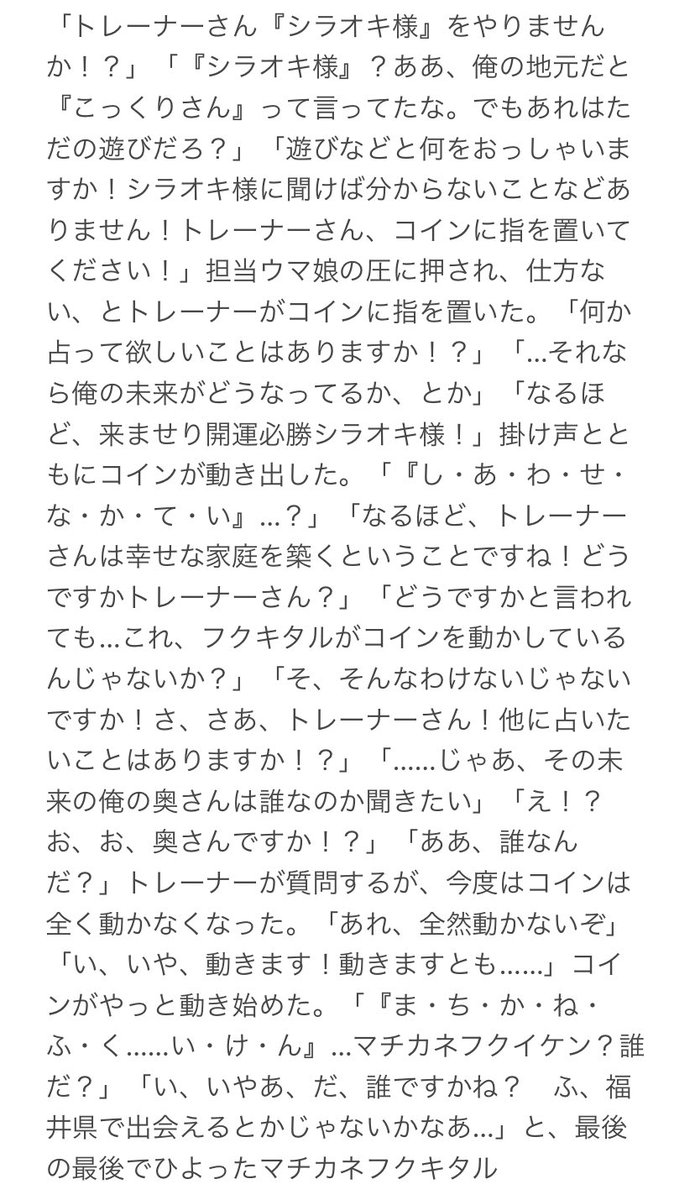 「トレーナーさん『シラオキ様』をやりません
か！？」「『シラオキ様』？ああ、俺の地元だと
『こっくりさん』って言ってたな。でもあれはた
だの遊びだろ？」「遊びなどと何をおっしゃいま
すか！シラオキ様に聞けば分からないことなどあ
りません！トレーナーさん、コインに指を置いて
ください！」担当ウマ娘の圧に押され、仕方な
い、とトレーナーがコインに指を置いた。「何か
占って欲しいことはありますか！？」「…それな
ら俺の未来がどうなってるか、とか」「なるほ
ど、来ませり開運必勝シラオキ様！」掛け声とと
もにコインが動き出した。「『し・あ・わ・せ・
な・か・て・い』…？」「なるほど、トレーナー
さんは幸せな家庭を築くということですね！どう
ですかトレーナーさん？」「どうですかと言われ
ても…これ、フクキタルがコインを動かしている
んじゃないか？」「そ、そんなわけないじゃない
ですか！さ、さあ、トレーナーさん！他に占いた
いことはありますか！？」「……じゃあ、その未
来の俺の奥さんは誰なのか聞きたい」「え！？
お、お、奥さんですか！？」「ああ、誰なん
だ？」トレーナーが質問するが、今度はコインは
全く動かなくなった。「あれ、全然動かないぞ」
「い、いや、動きます！動きますとも……」コイ
ンがやっと動き始めた。「『ま・ち・か・ね・
ふ・く……い・け・ん』…マチカネフクイケン？誰
だ？」「い、いやあ、だ、誰ですかね？　ふ、福
井県で出会えるとかじゃないかなあ…」と、最後
の最後でひよったマチカネフクキタル